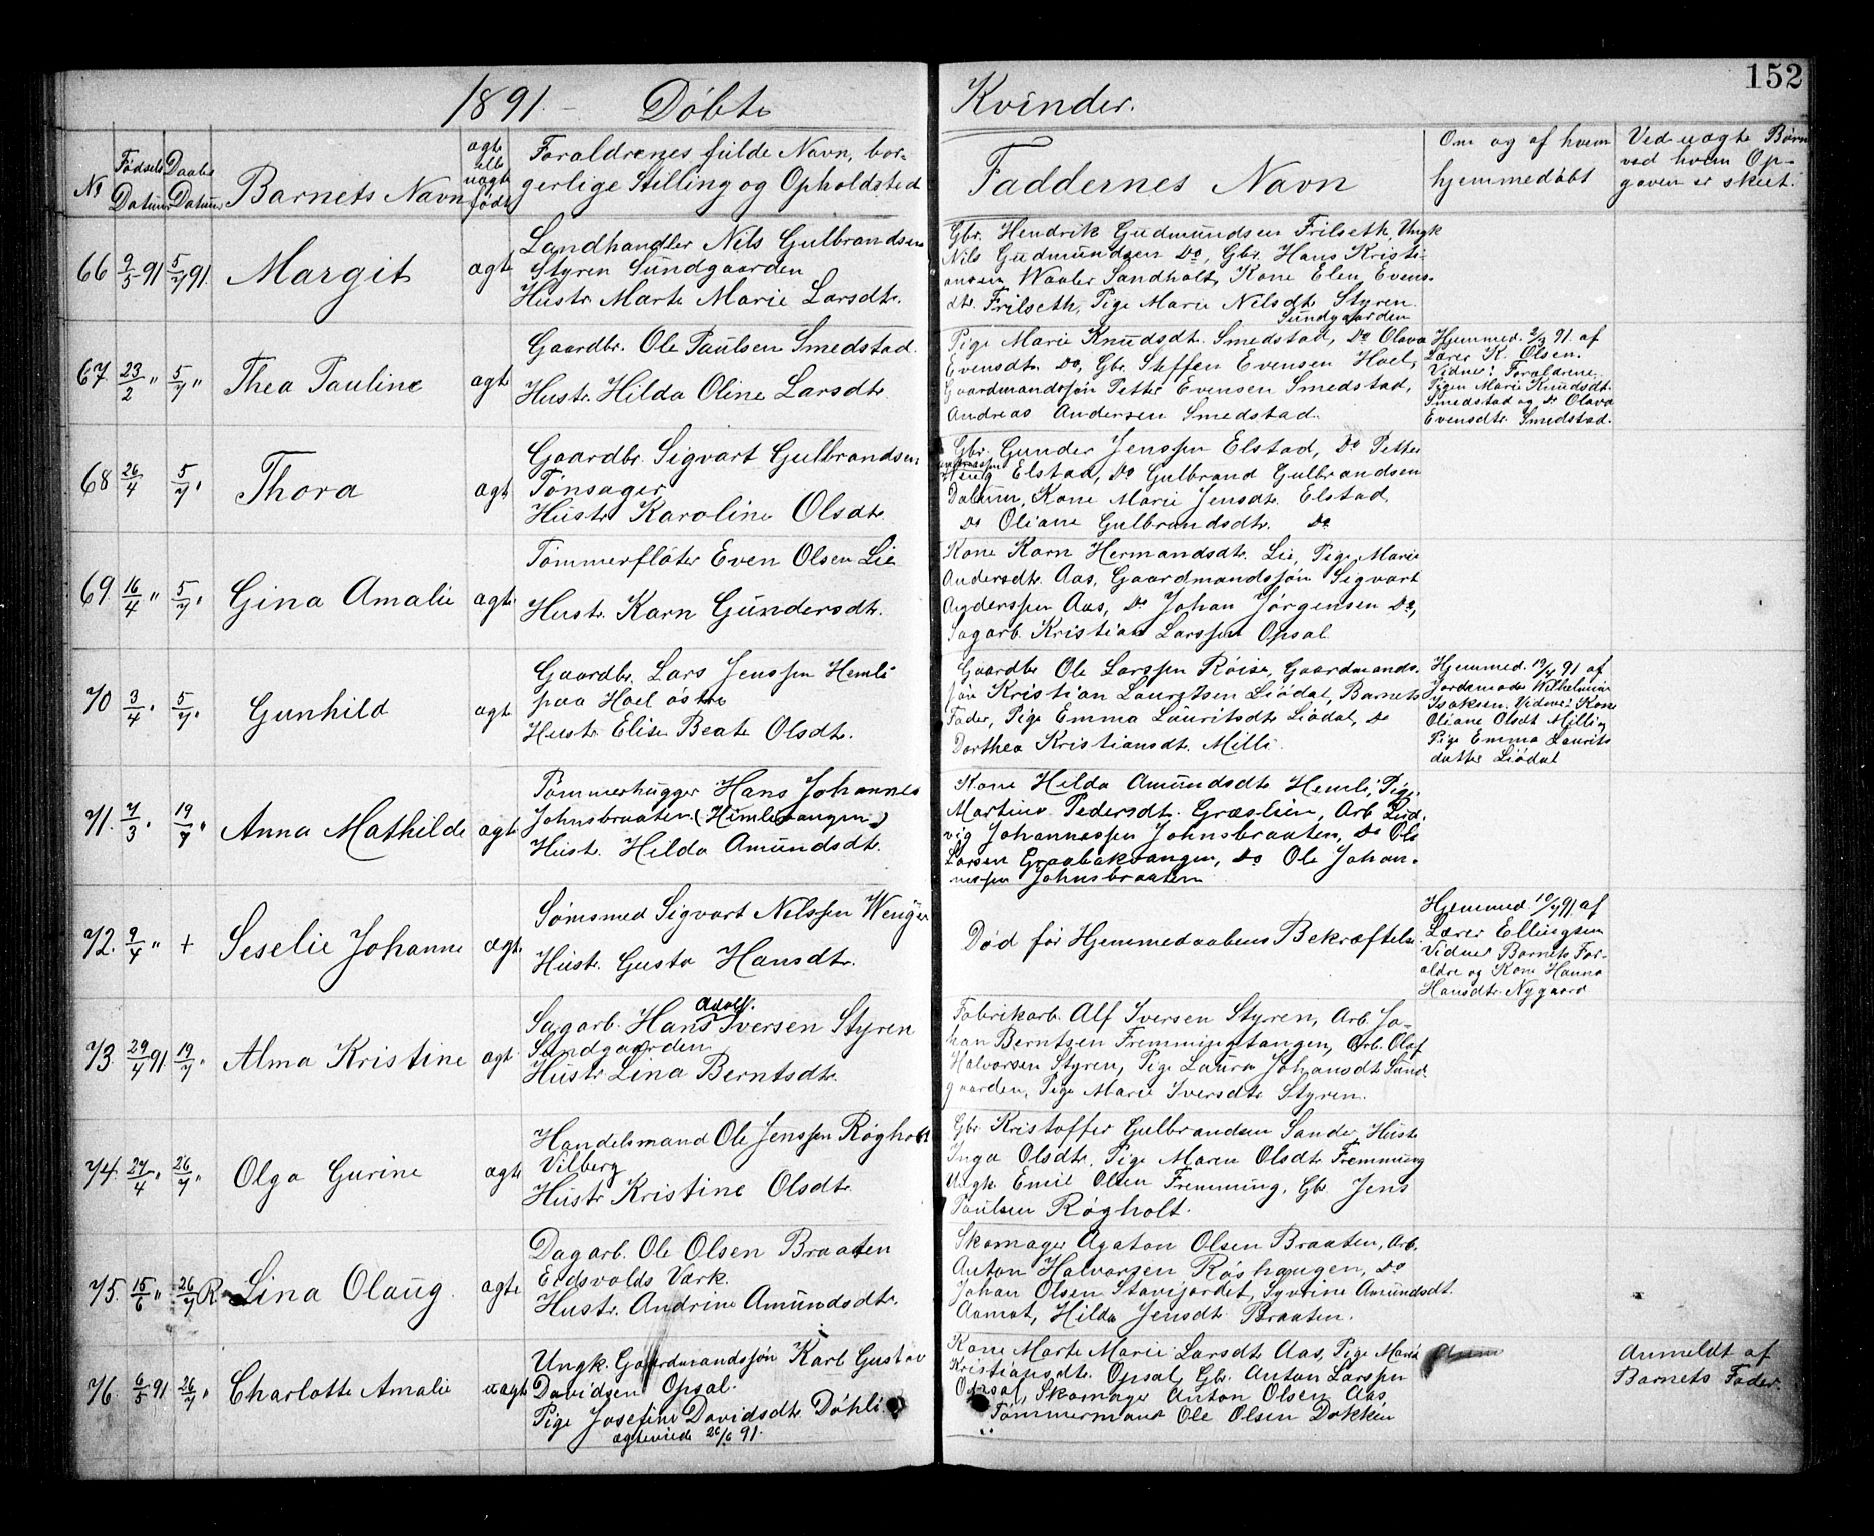 152
1891. Döbte Kvinder.
No
Fødsels Datum
Daabs Datum
Barnets Navn
ægte eller uægte født
Foraldrenes fulde Navn, bor-
gerlige Stilling og Opholdsted
Faddernes Navn
Om og af hvem
hjemmedøbt
Ved uægte Børn
ved hvem Op-
gaven er skeet.
66 9/5 91 5/7 91. Margit ægte
Landhandler Nils Gulbrandsen
Styren Sundgaarden
Hustr. Marte Marie Larsdtr.
Gbr. Hendrik Gudmundsen Frilseth, Ungk
Nils Gudmundsen Do, Gbr. Hans Kristi-
ansen Waaler Sandholt, Kone Elen Evens-
dtr. Frilseth, Pige Marie Nilsdtr Styren
Sundgaarden
67 23/2 " 5/7 " Thea Pauline ægte
Gaardbr. Ole Paulsen Smedstad.
Hustr. Hilda Oline Larsdtr.
Pige Marie Knudsdt. Smedstad, Do Olava
Evensdtr. Do, Gbr. Steffen Evensen Hoel,
Gaardmandssøn Petter Evensen Smedstad,
Andreas Andersen Smedstad.
Hjemmed. 2/3 91. af
Lærer K. Olsen.
Vidner: Foraldrene
Pigen Marie Knudsdt.
Smedstad og Do Olava
Evensdtr. Smedstad.
68 26/4 5/7 " Thora ægte
Gaardbr. Sigvart Gulbrandsen
Tønsager
Hustr. Karoline Olsdtr.
Gbr. Gunder Jenssen Elstad, Do Petter
Elstad, Do Gulbrand Gulbrandsen
Dalum, Kone Marie Jensdtr. Elstad,
Do Oliane Gulbrandsdtr. Do
69. 16/4 " 5/7 " Gina Amalie ægte
Tømmerflöter Even Olsen Lie
Hustr. Karn Gundersdtr.
Kone Karn Hermandsdtr. Lie, Pige Marie
Andersdtr. Aas, Gaardmandssøn Sigvart
Anderssen Aas, Do Johan Jørgensen Do,
Sagarb. Kristian Larssen Opsal
70 3/4 " 5/7 " Gunhild ægte
Gaardbr. Lars Jenssen Hemli
paa Hoel östre
Hustr. Elise Beate Olsdtr.
Gaardbr Ole Larssen Röise, Gaardmands-
søn Kristian Lauritsen Liödal, Barnets
Fader, Pige Emma Lauritsdtr Liödal, Do
Dorthea Kristiansdt. Milli.
Hjemmed. 19/4 91 af
Jordemoder Wilhelmine
Isaksen. Vidner: Kone
Oliane Olsdt Milli,
Pige Emma Laurits
datter Liödal
71. 7/3 " 19/7 " Anna Mathilde ægte
Tømmerhugger Hans Johannes
Johnsbraaten (Himlitangen)
Hustr. Hilda Amundsdt.
Kone Hilda Amundsdtr Hemli, Pige
Martine Pedersdt. Græslien, Arb. Lud-
vig Johannessen Johnsbraaten, Do Ole
Larsen Graabakvangen, Do Ole Johan-
nessen Johnsbraaten
72. 9/4 " + Seselie Johanne ægte
Sömsmed Sigvart Nilssen Wenger
Hustr. Gusta Hansdtr.
Död før Hjemmedaabens Bekræftelse.
Hjemmed 10/4 91. af
Lærer Ellingsen
Vidner Barnets For-
aldre og Kone Hanna
Hansdtr. Nygaard
73. 29/4 91. 19/7 " Alma Kristine ægte
Sagarb. Hans Adolf. Iversen Styren
Sundgaarden
Hustr Lina Berntsdtr.
Fabrikarb. Alf Iversen Styren, Arb. Jo-
han Berntsen Fremmingstangen, Arb. Olaf
Halvorsen Styren, Pige Laura Johansdt Sund-
gaarden, Pige Marie Iversdtr Styren.
74. 27/4 " 26/7 " Olga Gurine ægte
Handelsmand Ole Jenssen Røgholt
Vilberg
Hustr Kristine Olsdtr.
Gbr Kristoffer Gulbrandsen Sander, Hustr
Inga Olsdtr. Pige Maren Olsdtr Fremming
Ungk Emil Olsen Fremming, Gbr. Jens
Paulsen Røgholt.
75. 15/6 " 26/7 Lina Olaug. ægte
Dagarb. Ole Olsen Braaten
Eidsvolds Værk.
Hustr. Andrine Amundsdtr.
Skomager Agaton Olsen Braaten, Arb.
Anton Halvorsen Röshaugen, Do
Johan Olsen Stavijordet, Syvrine Amundsdt.
Aamot, Hilda Jensdt Braaten.
76. 6/5 91 26/7 " Charlotte Amalie uægte
Ungk. Gaardmandssøn Karl Gustav
Davidsen Opsal.
Pige Josefine Davidsdtr Döhli
ægteviede 26/6 91.
Kone Marte Marie Larsdtr Aas, Pige Maria
Kristiansdtr. Opsal, Gbr. Anton Larssen
Opsal, Skomager Anton Olsen Aas
Tømmermand Ole Olsen Dokken
Anmeldt af
Barnets Fader.